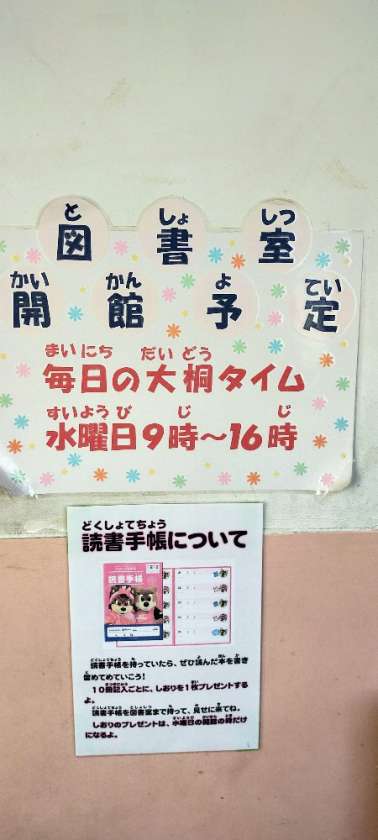 としょしつ
図書室
かいかんよてい
開館予定
まいにち だいどう
毎日の大桐タイム
すいようび じ じ
水曜日9時～16時
どくしょてちょう
読書手帳について
読書手帳
どくしょてちょう も よ ほん か
読書手帳を持っていたら、ぜひ読んだ本を書き
留めてめていこう！
10冊記入ごとに、しおりを1枚プレゼントする
よ。
どくしょてちょう としょしつ も み き
読書手帳を図書室まで持って、見せに来てね。
しおりのプレゼントは、水曜日の開館の時だけ
になるよ。